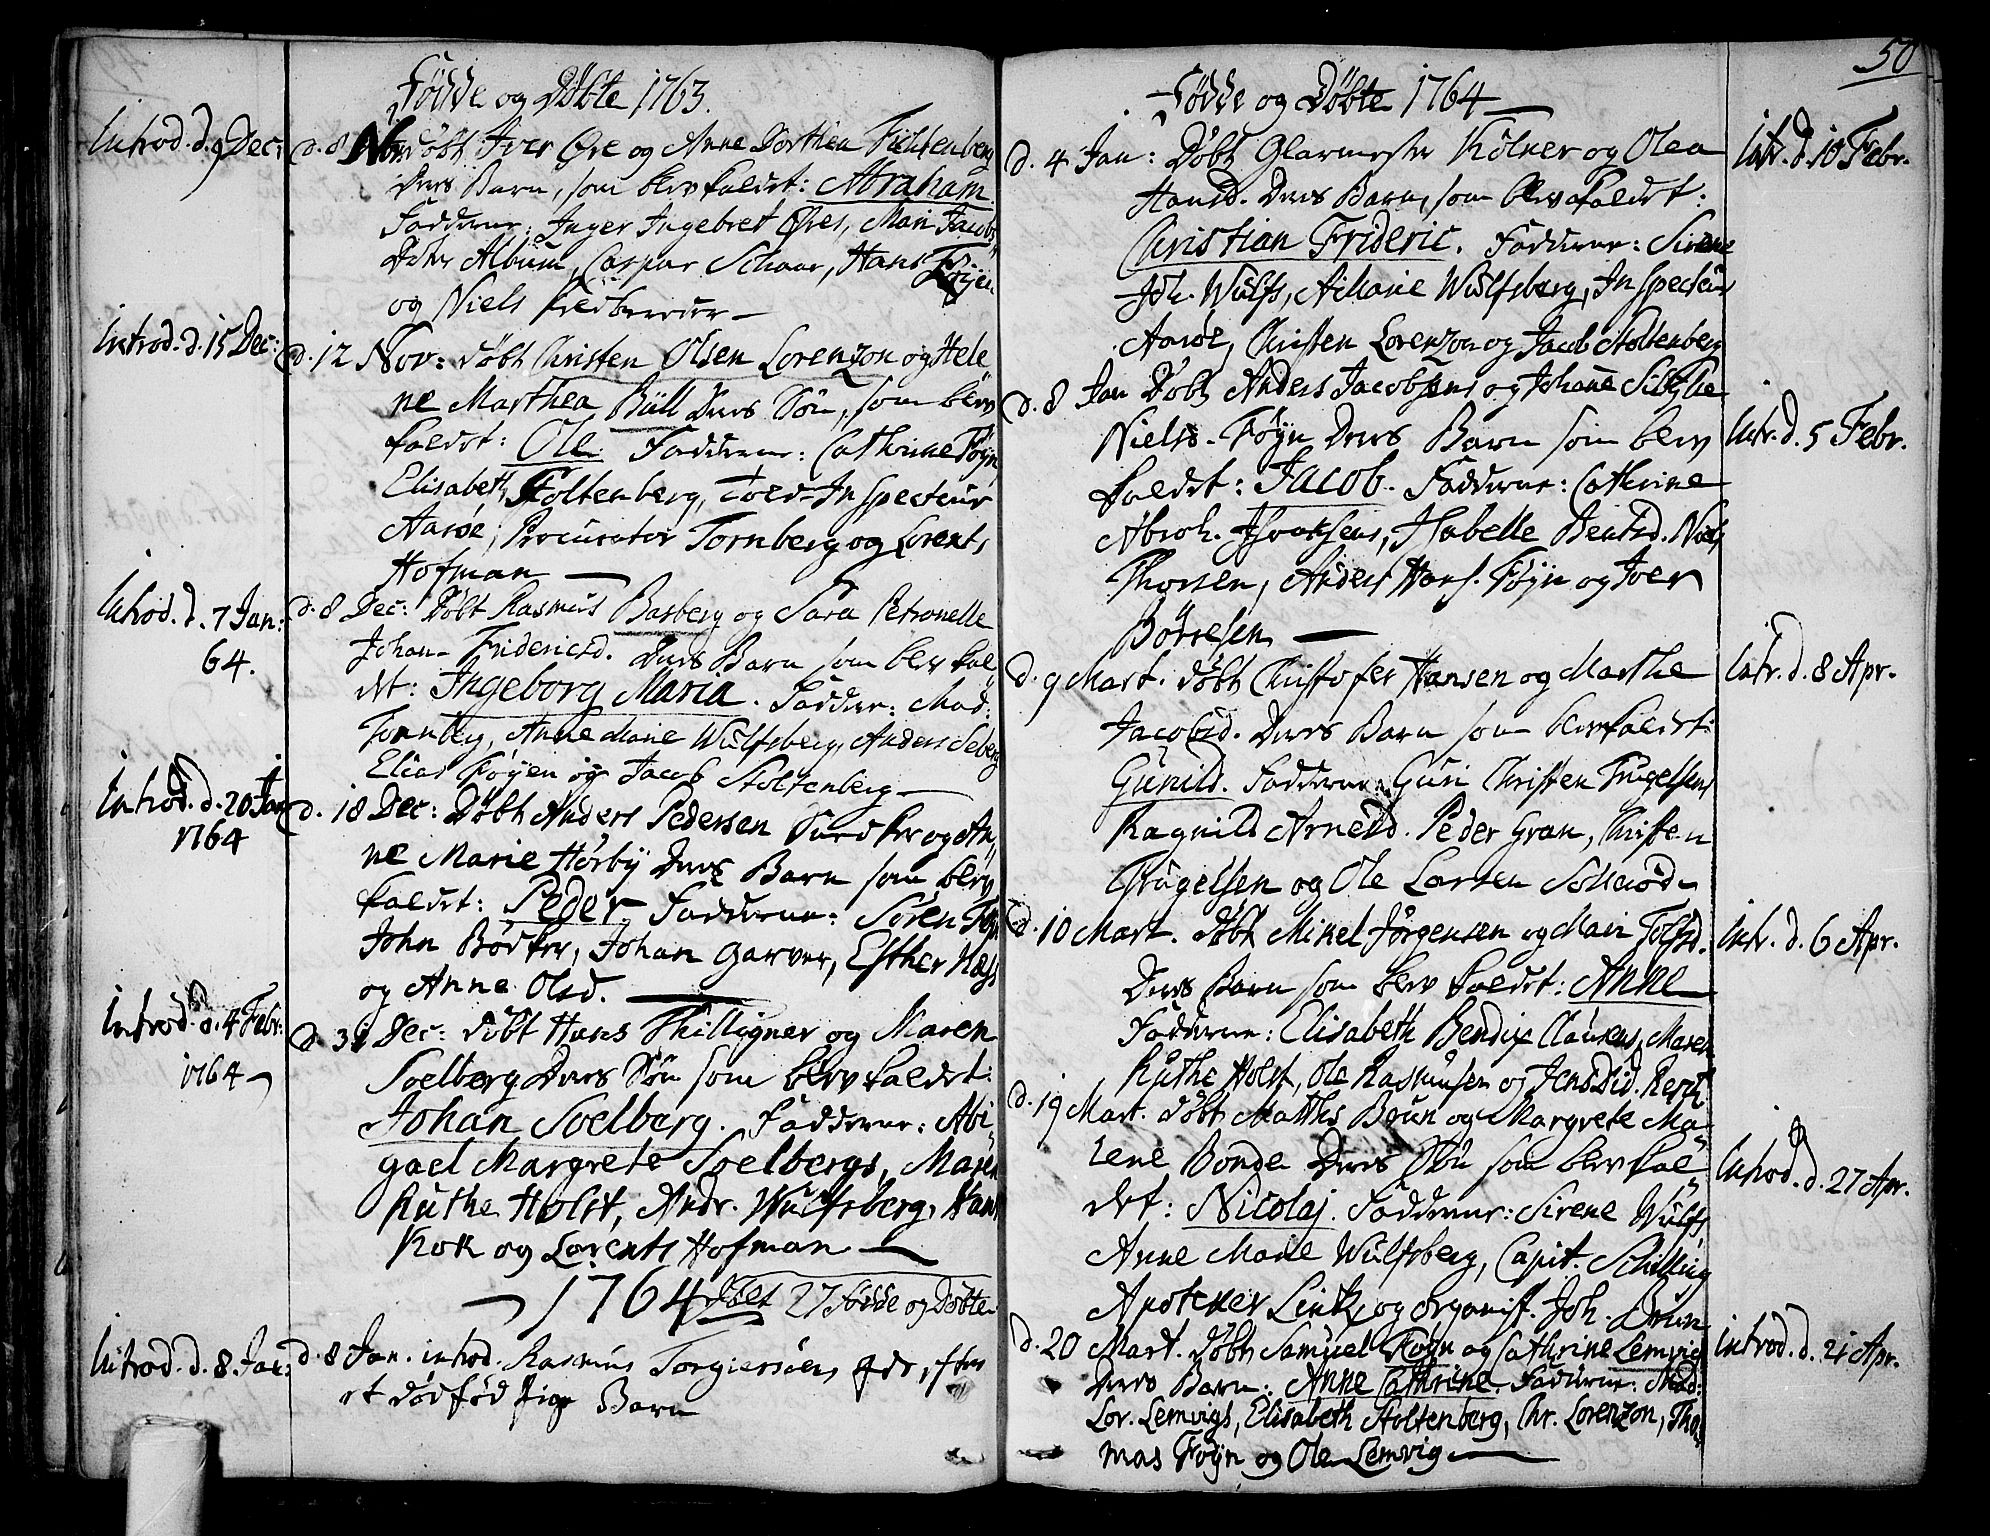 Fødde og Døbte 1763.
Introd. d. 9 Dec:
d. 8 Nov døbt Iver Øre og Anne Dorthea Fichtenberg
Deres Barn, som blev kaldet: Abraham
Fadderne: Inger Ingebret Øres, Mari Jacobs
Dater Album, Caspar Schaar, Hans Føyen
og Niels
Introd. d. 15 Dec:
d. 12 Nov: døbt Christen Olsen Lorenzon og Hele
ne Marthea Büll Deres Søn, som blev
kaldet: Ole. Fadderne: Cathrine Føyn
Elisabeth Stoltenberg, Told-Inspecteur
Aarøe, Procurator Tornberg og Lorents
Hofman —
Introd. d. 7 Jan:
64.
d. 8 Dec: Døbt Rasmus Basberg og Sara Petronelle
Johan-Fridericsd. Deres Barn som blev kal
det: Ingeborg Maria. Fadderne: Mad:
Tornberg, Anne Marie Wülfsberg, Anders Seberg
Elias Føyen og Jacob Stoltenberg —
Introd. d. 20 Jan
1764
d. 18 Dec: Døbt Anders Pedersen og An
ne Marie Hørbÿ Deres Barn som blev
kaldet: Peder Fadderne: Søren Føyn
John Bødker, Johan Garver, Esther Næss
og Anne Olsd. —
Introd. d. 4 Febr:
1764
d. 31 Dec: døbt Hans Thilligner og Maren
Soelberg Deres Søn som blev kaldet:
Johan Soelberg. Fadderne: Abi
gael Margrete Soelbergs, Maren
Ruthe Holst, Andr. Wülfsberg, Hans
Kok og Lorents Hofman —
1764 27 Fødde og Døbte
Introd. d. 8 Jan:
d. 8 Jan. introd. Rasmus Torgiersøens efter
et dødfød Barn
50
Fødde og Døbte 1764 —
d. 4 Jan: Døbt Glarmester Kölner og Olea
Intr. d. 10 Febr.
Hansd. Deres Barn, som blev kaldet:
Christian Frideric. Fadderne: Sirene
Joh. Wülfs, A Marie Wülfsberg, Inspecteur
Aarøe, Christen Lorenzon og Jacob Stoltenberg
d. 8 Jan Døbt Anders Jacobsens og Johanne Sibylle
Niels. Føyn Deres Barn som blev
Intr. d. 5 Febr.
kaldet: Jacob. Fadderne: Cathrine
Abrah. Isabelle Bentsd. Niels
Thorsen, Anders Hans. Føyn og Iver
Børresen —
d. 9 Mart. døbt Christofer Hansen og Marthe
Intr. d. 8 Apr.
Jacobsd. Deres Barn som blev kaldet:
Gunild. Fadderne: Guri Christen Trugelsens
Ragnild Arnesd. Peder Gran, Christen
Trugelsen og Ole Larsen
d. 10 Mart. døbt Mikel Jörgensen og Mari Tolfsd.
Intr. d. 6 Apr.
Deres Barn som blev kaldet: Anne
Fadderne: Elisabeth Bendix Clausens, Maren
Ruthe Holst, Ole Rasmusen og Jens Did.
d. 19 Mart. døbt Matths Brun og Margrete Ma
lene Bonde Deres Søn som blev kal
Introd. d. 27 Apr.
det: Nicolaj. Fadderne: Sirene Wülfs,
Anne Marie Wülfsberg, Capit. Schilling
Apoteker Link og organist. Joh. Brun
d. 20 Mart. døbt Samuel Foyn og Cathrine Lemvig
Introd. d. 21 Apr.
Deres Barn: Anne Cathrine. Fadderne: Mad:
Lor. Lemvigs, Elisabeth Stoltenberg, Chr. Lorenzon, Tho
mas Foyn og Ole Lemvig —